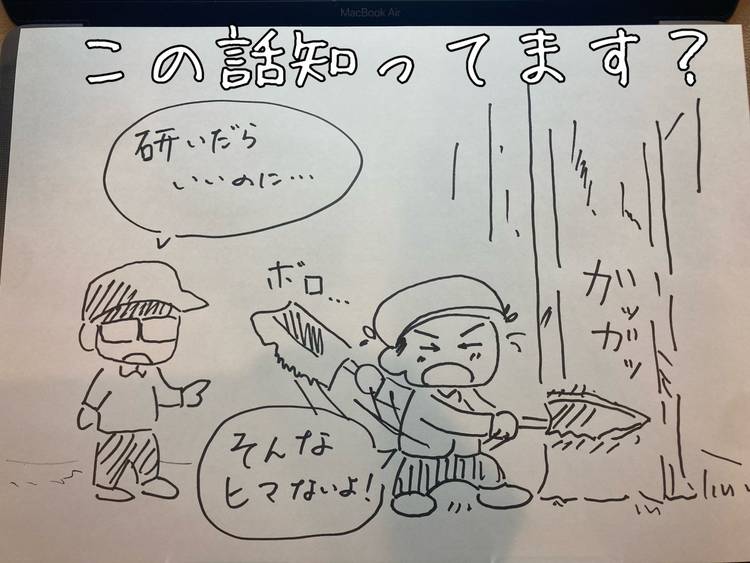 MacBook Air
この話知ってます？
研いだら
いいのに…
ボロ…
ガッガッ
そんな
ヒマないよ！